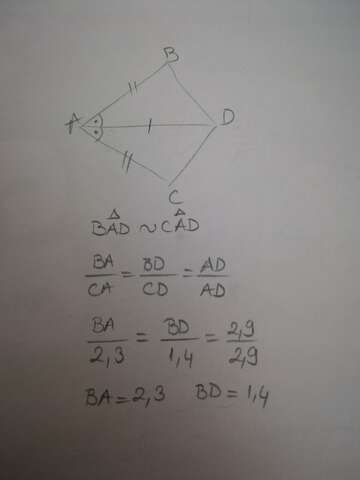 B
A
D
C
BAD ~ CAD
BA/CA = BD/CD = AD/AD
BA/2,3 = BD/1,4 = 2,9/2,9
BA = 2,3 BD = 1,4